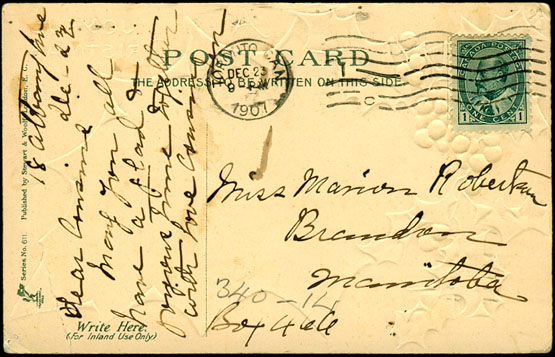 POST CARD
THE ADDRESS TO BE WRITTEN ON THIS SIDE
TORONTO CAN.
DEC 23
1907
CANADA POSTAGE
1 ONE CENT 1
Miss Marion Robertson
Brandon
Manitoba
340-14
Box
18
Dec - 22
Dear
May you all
have a glad &
time together
with love
Write Here.
(For Inland Use Only)
Series No. 611. Published by Stewart & Woolf, London, E.C.